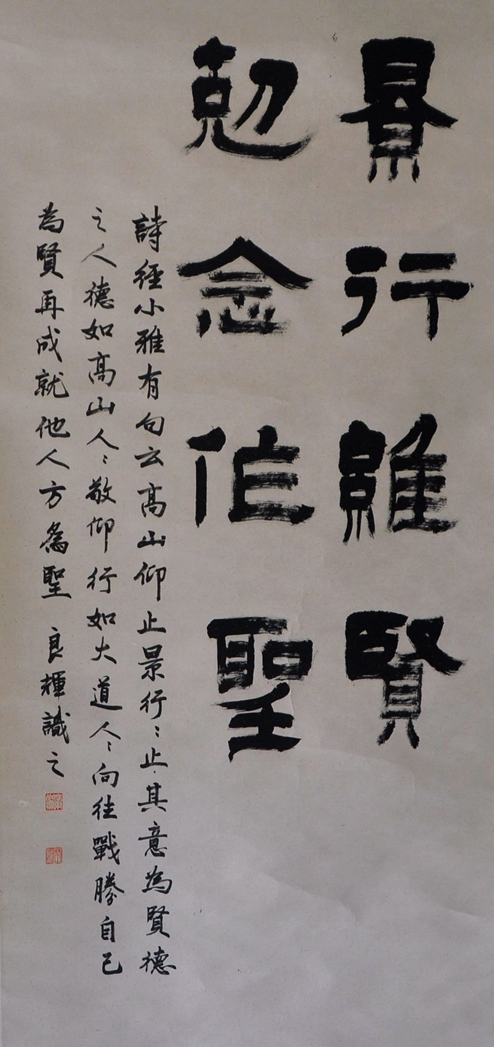 景行維賢
勊念作聖
詩經小雅有句云高山仰止景行〻止其意為賢德
之人德如高山人〻敬仰行如大道人〻向往戰勝自己
為賢再成就他人方為聖 良輝識之